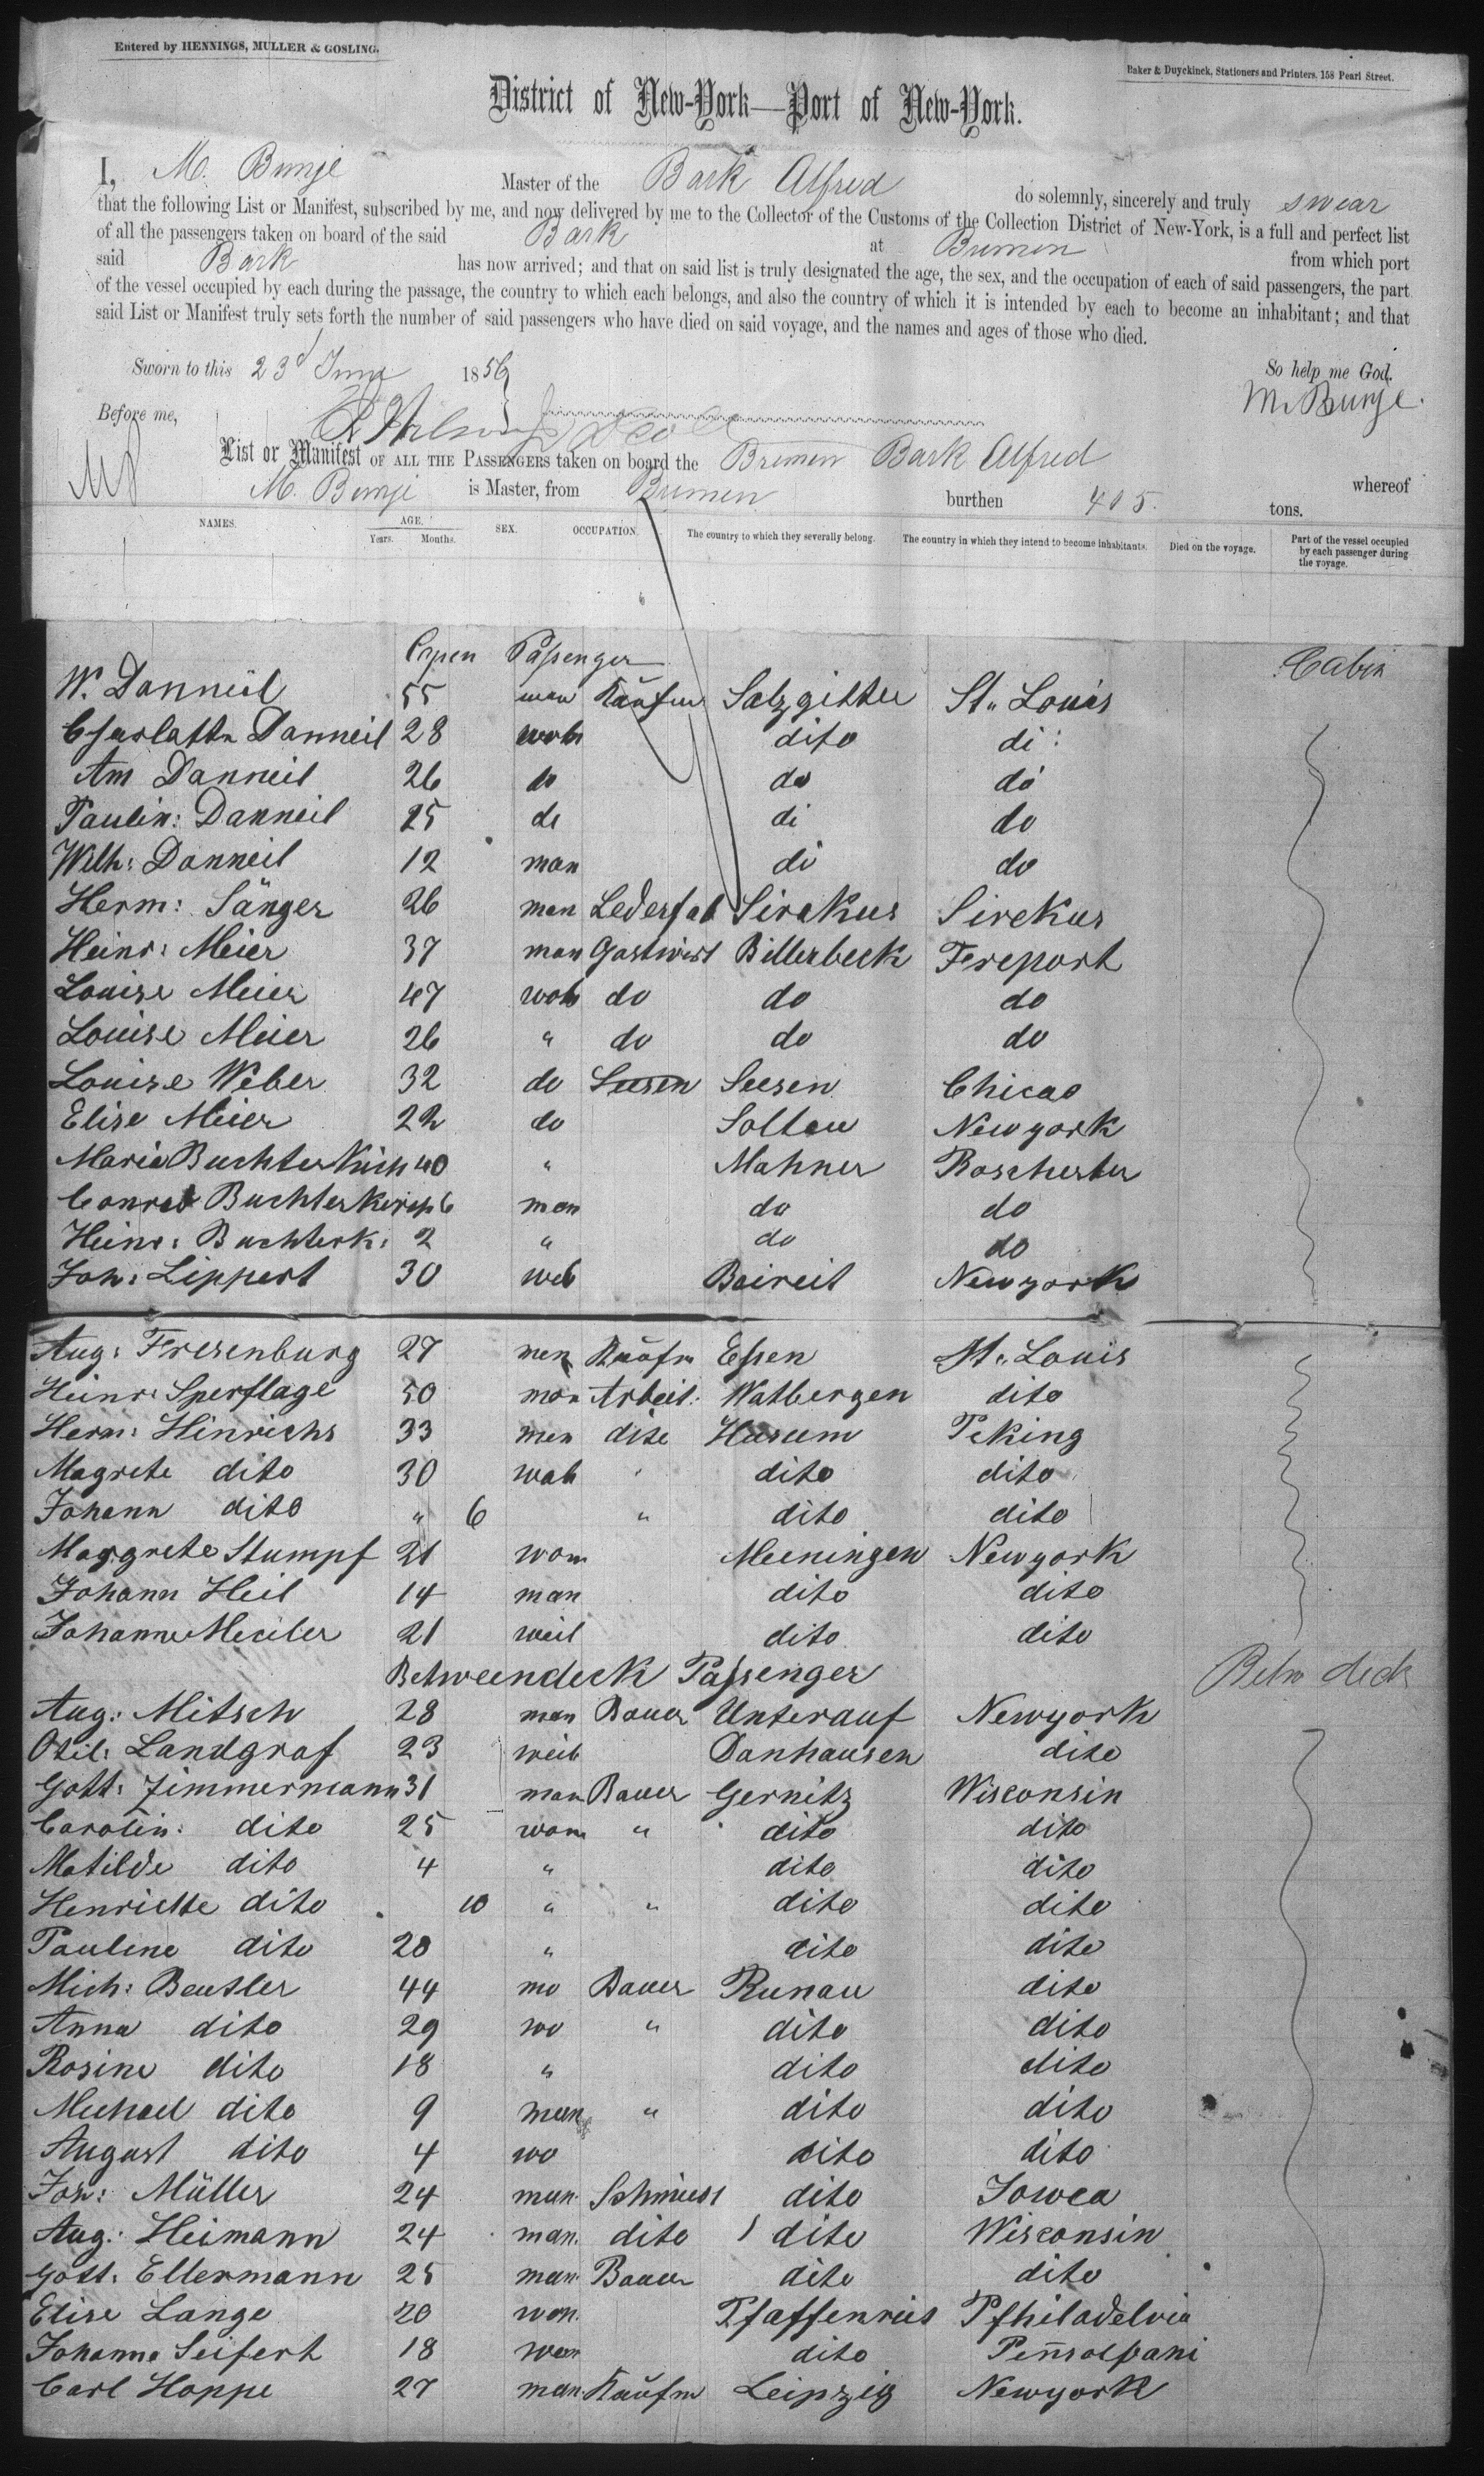 Entered by HENNINGS, MULLER & GOSLING.
Baker & Duyckinck, Stationers and Printers, 158 Pearl Street.
District of New-York—Port of New-York.
I, M. Bunje Master of the Bark Alfred do solemnly, sincerely and truly swear
that the following List or Manifest, subscribed by me, and now delivered by me to the Collector of the Customs of the Collection District of New-York, is a full and perfect list
of all the passengers taken on board of the said Bark at Bremen from which port
said Bark has now arrived; and that on said list is truly designated the age, the sex, and the occupation of each of said passengers, the part
of the vessel occupied by each during the passage, the country to which each belongs, and also the country of which it is intended by each to become an inhabitant; and that
said List or Manifest truly sets forth the number of said passengers who have died on said voyage, and the names and ages of those who died.
Sworn to this 23d June 1856 So help me God.
Before me, M. Bunje.
List or Manifest OF ALL THE PASSENGERS taken on board the Bremen Bark Alfred
whereof M. Bunje is Master, from Bremen burthen 405. tons.
NAMES. AGE. Years. Months. SEX. OCCUPATION. The country to which they severally belong. The country in which they intend to become inhabitants. Died on the voyage. Part of the vessel occupied by each passenger during the voyage.
Passenger Cabin
W. Danneil 55 man Kaufm Salzgitter St. Louis
Danneil 28 weib dito di :
Am Danneil 26 do do do
Paulin: Danneil 25 de di do
Wilh: Danneil 12 man di do
Herm: Sänger 26 man Lederfab Sirakus Sirekus
Heinr: Meier 37 man Gastwirt Billerbeck Freport
Louise Meier 47 weib do do do
Louise Meier 26 " do do do
Louise Weber 32 do Seesen Seesen Chicao
Elise Meier 22 do Soltau Newyork
Maria 40 " Mahner Roschester
Conrad 6 man do do
Heinr: Buchterk: 2 " do do
Joh: Lippert 30 web Baireit Newyork
Aug: Fresenburg 27 men Kaufm Essen St. Louis
Heinr: Sperflage 50 man Arbeit: Watbergen dito
Herm: Hinrichs 33 men dite Husum Peking
Magrete dito 30 wab " dito dito
Johann dito " 6 " dito dito
Margrete Stumpf 21 wom Meeningen Newyork
Johann Heil 14 man dito dito
Johanne 21 weib dito dito
Betweendeck Passenger Betw deck
Aug: Mitsch 28 man Bauer Unterauf Newyork
Otil: Landgraf 23 weib Danhausen dito
Gott: Zimmermann 31 man Bauer Gernitz Wisconsin
Carolin: dito 25 wom " dito dito
Matilde dito 4 " dito dito
Henriette dito 10 " " dito dito
Pauline dito 20 " dito dito
Mich: Beutler 44 ma Bauer Runau dito
Anna dito 29 wo " dito dito
Rosine dito 18 " dito dito
Michael dito 9 man " dito dito
August dito 4 wo dito dito
Joh: Müller 24 man Schmiedt dito Iowea
Aug: Heimann 24 man. dito dito Wisconsin
Gott: Ellermann 25 man Bauer dito dito
Elise Lange 20 wom. Pfaffenries Pfhiladelvia
Johanna Seifert 18 wom dito
Carl Hoppe 27 man Kaufm Leipzig Newyork